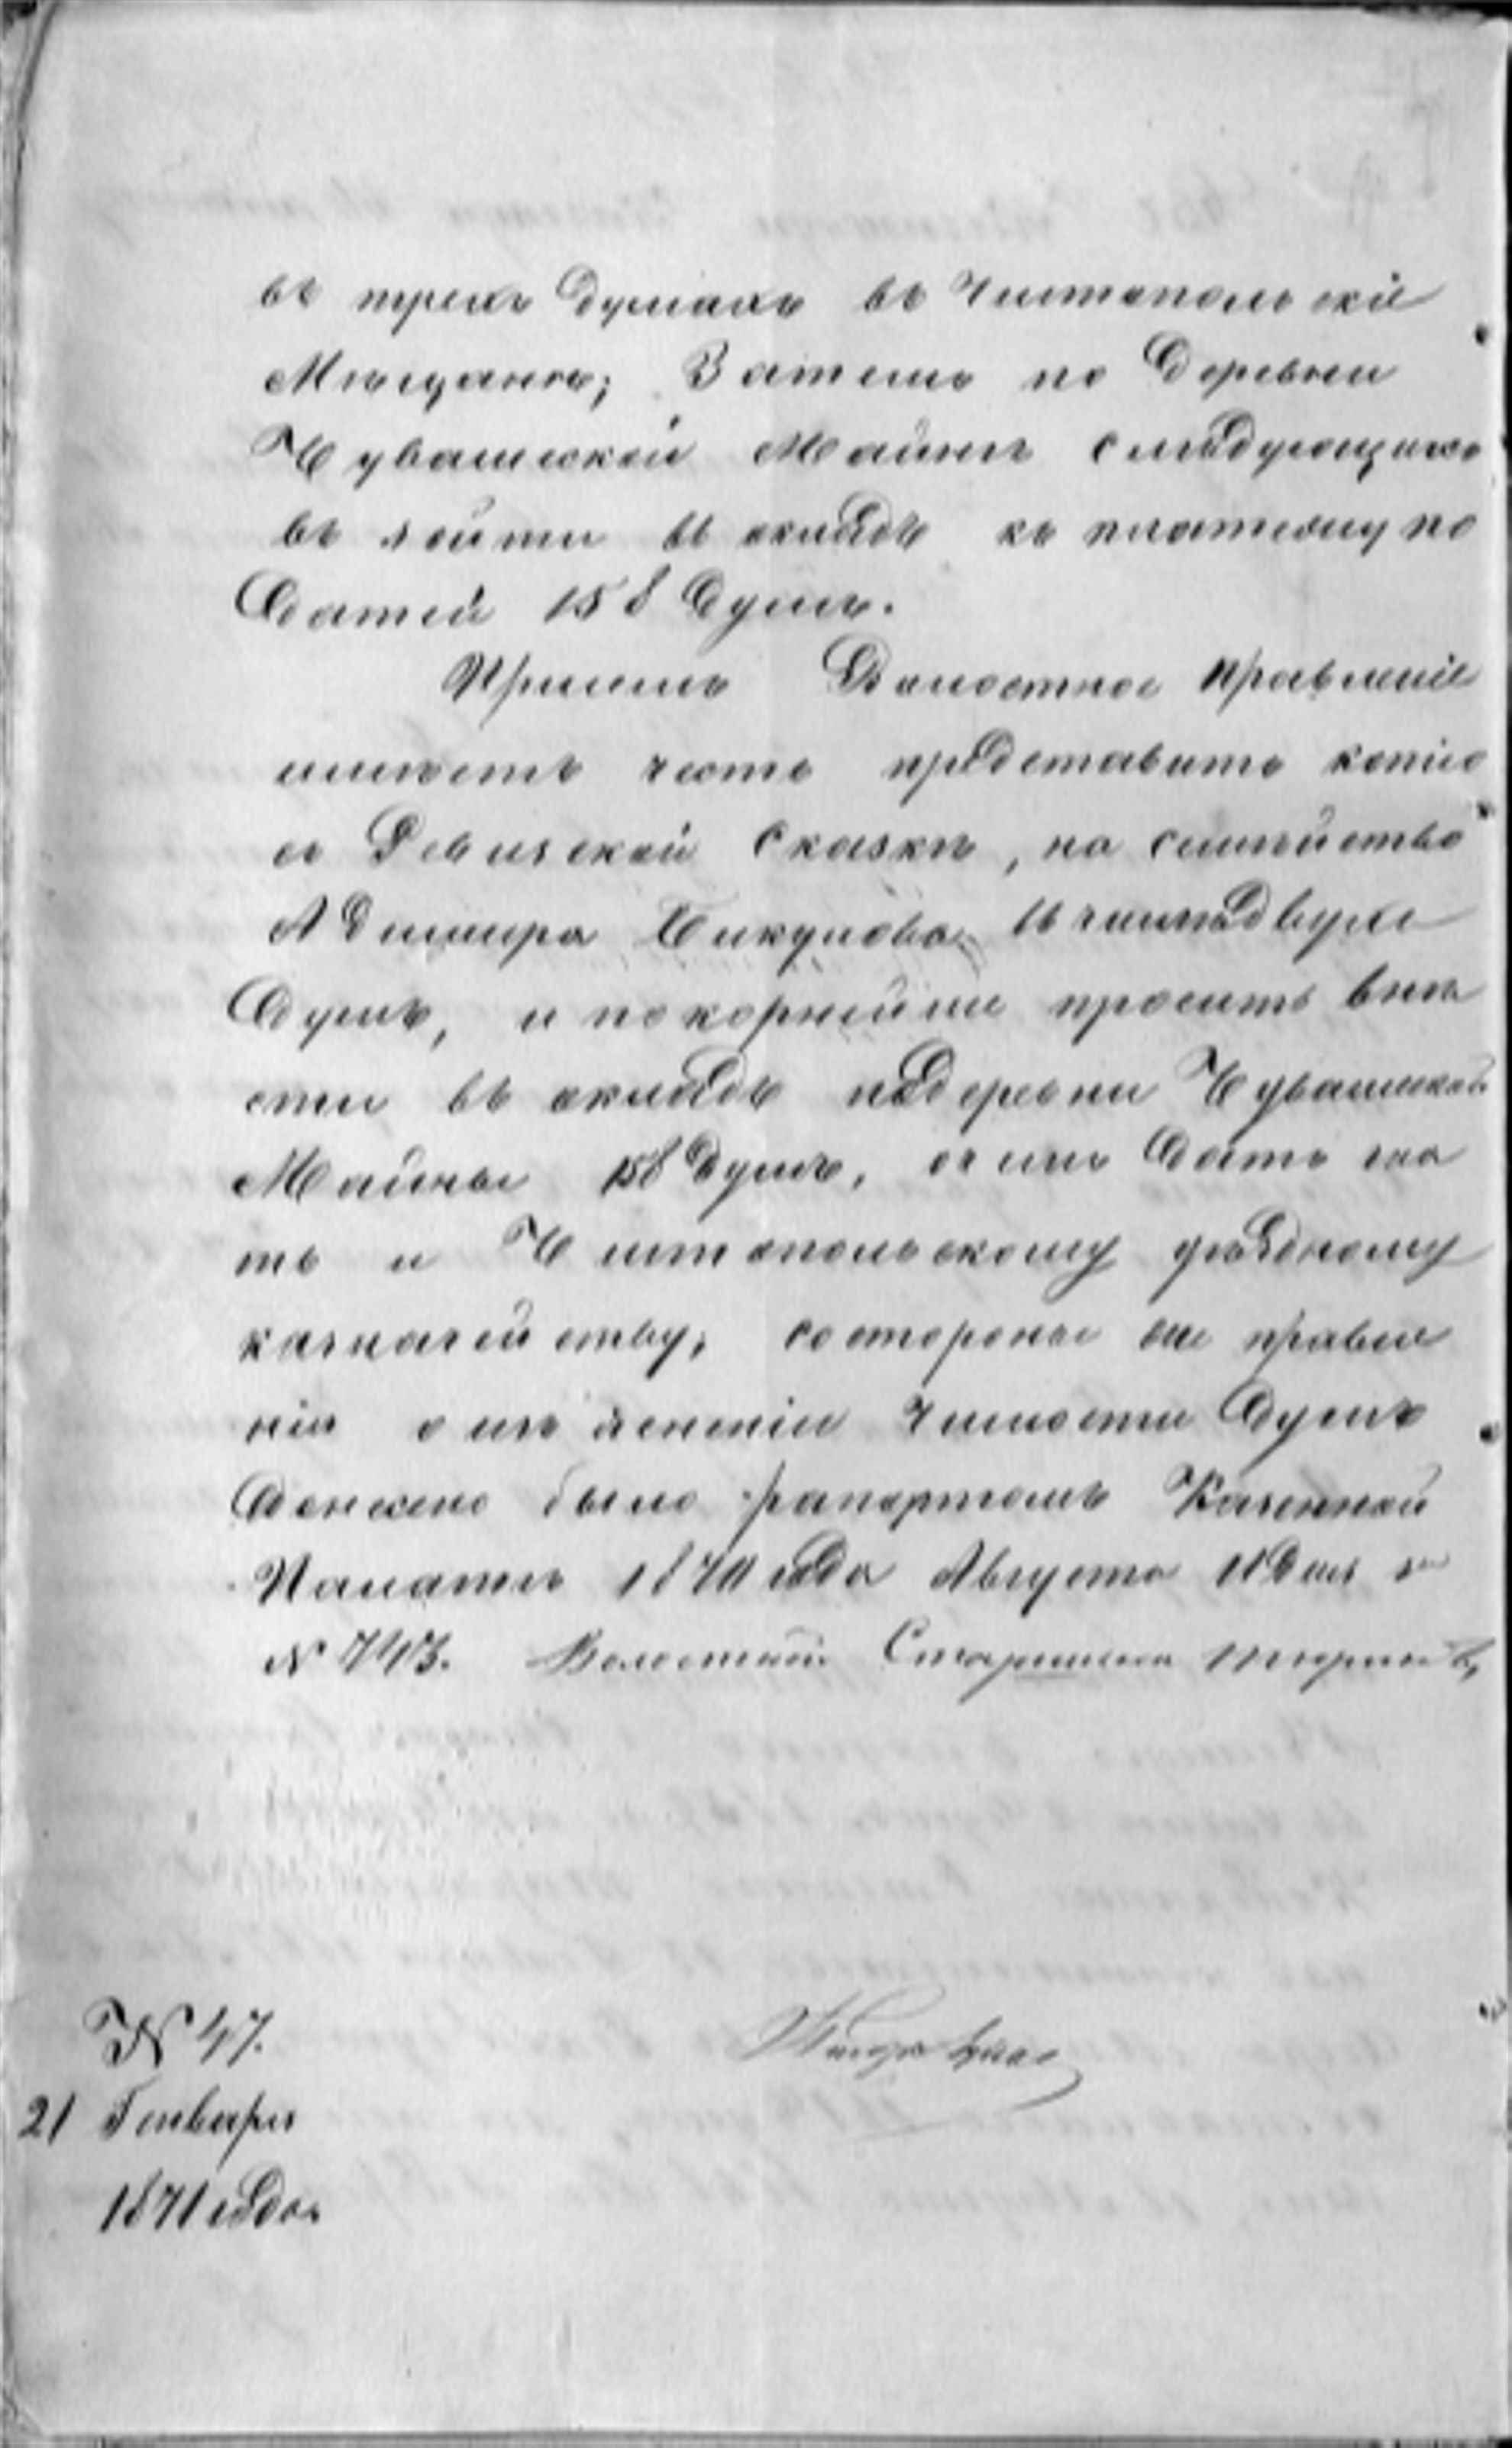 въ трехъ душахъ въ Чистопольскіе
Мѣщане; Затемъ по деревни
Чувашской Майнѣ слѣдующихъ
въ зойти въ окладъ къ платежу по
датей 158 душъ.
Причемъ Волостное правленіе
имѣетъ честь представить копію
съ Ревизской Сказки, на семѣйство
Адишира Бикулова въ числѣ двухъ
душъ, и покорнейше проситъ внѣ
сти въ окладъ по деревни Чувашской
Майны 158 душъ, о чемъ дать зна
ть и Чистопольскому уѣздному
казначейству, со стороны же правле
нія о изъ
численіи
душъ
донесено было рапортомъ Казенной
Палатѣ 1870 года Августа 11 дня за
N 743. Волостной Старшина
N 47.
21 Генваря
1871 года